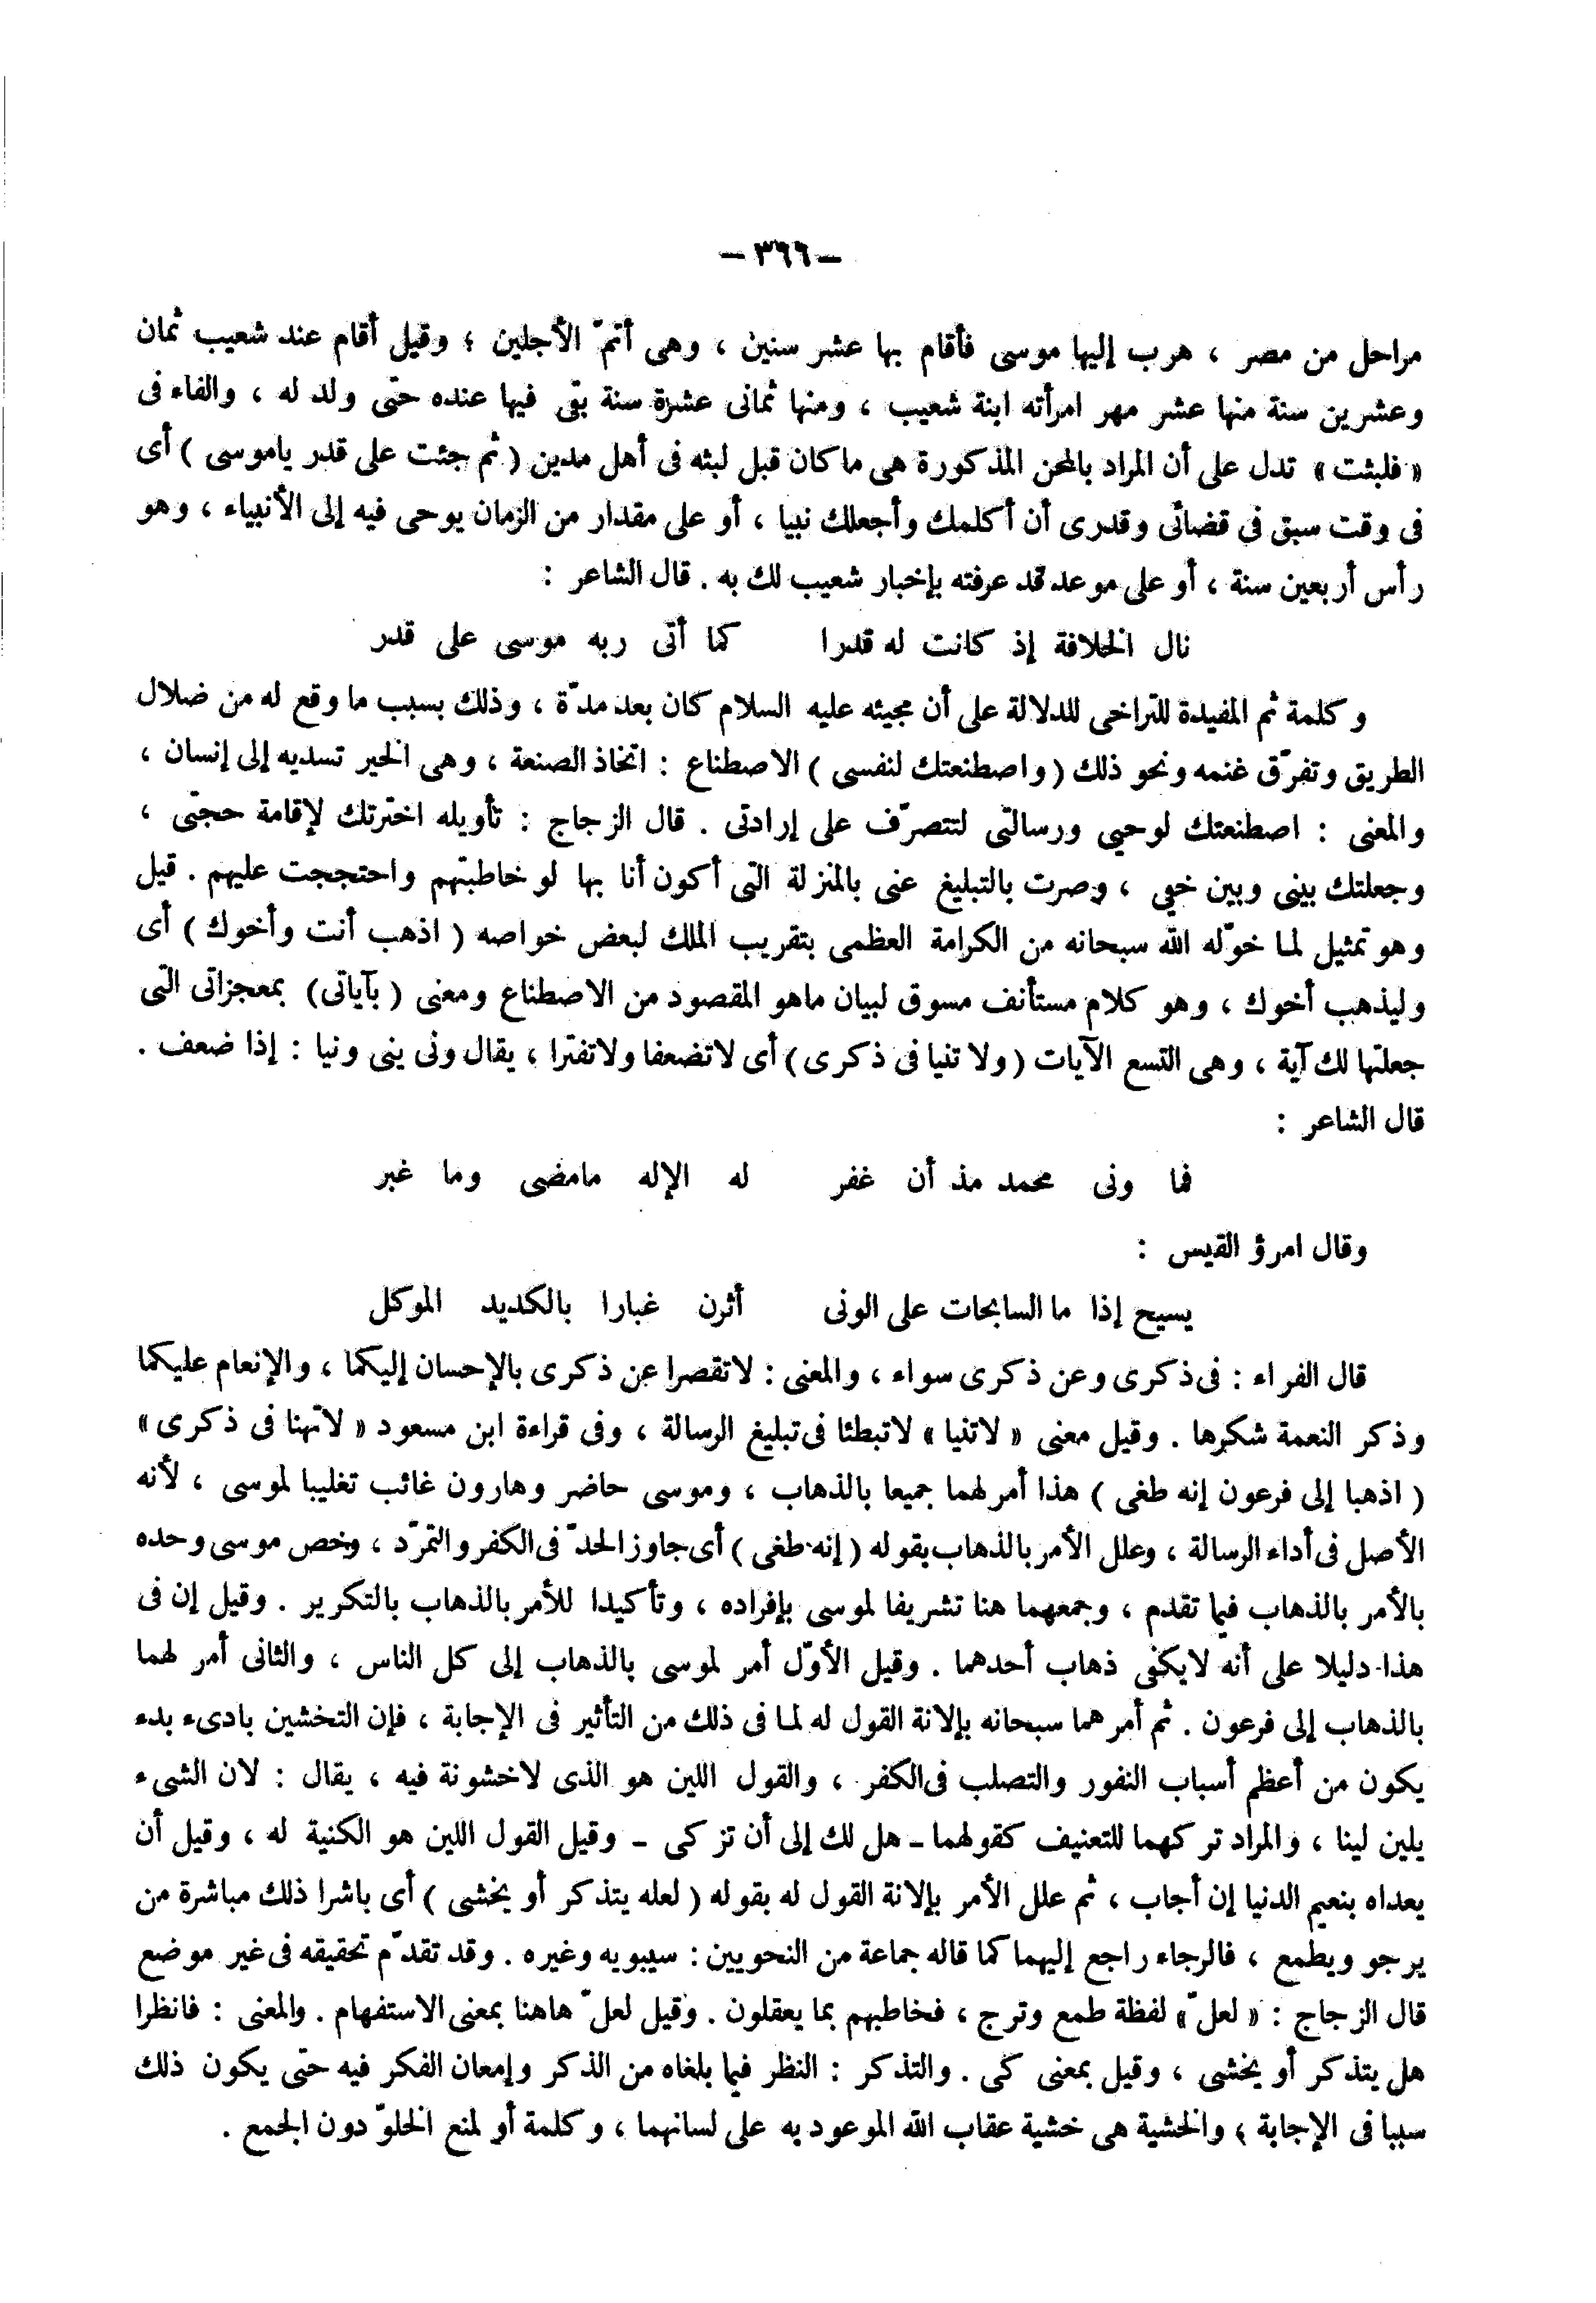 – ٣٦٦ –
مراحل من مصر ، هرب إليها موسى فأقام بها عشر سنين ، وهى أتمّ الأجلين ؛ وقيل أقام عند شعيب ثمان
وعشرين سنة منها عشر مهر امرأته ابنة شعيب ، ومنها ثمانى عشرة سنة بقى فيها عنده حتى ولد له ، والفاء فى
« فلبثت » تدل على أن المراد بالمحن المذكورة هى ما كان قبل لبثه فى أهل مدين ( ثم جئت على قدر ياموسى ) أى
فى وقت سبق فى قضائى وقدرى أن أكلمك وأجعلك نبيا ، أو على مقدار من الزمان يوحى فيه إلى الأنبياء ، وهو
رأس أربعين سنة ، أو على موعد قد عرفته بإخبار شعيب لك به . قال الشاعر :
نال الخلافة إذ كانت له قدرا كما أتى ربه موسى على قدر
وكلمة ثم المفيدة للتراخى للدلالة على أن مجيئه عليه السلام كان بعد مدّة ، وذلك بسبب ما وقع له من ضلال
الطريق وتفرّق غنمه ونحو ذلك ( واصطنعتك لنفسى ) الاصطناع : اتخاذ الصنعة ، وهى الخير تسديه إلى إنسان ،
والمعنى : اصطنعتك لوحيى ورسالتى لتتصرّف على إرادتى . قال الزجاج : تأويله اخترتك لإقامة حجتى ،
وجعلتك بينى وبين خلقى ، وصرت بالتبليغ عنى بالمنزلة التى أكون أنا بها لو خاطبتهم واحتججت عليهم . قيل
وهو تمثيل لما خوّله الله سبحانه من الكرامة العظمى بتقريب الملك لبعض خواصه ( اذهب أنت وأخوك ) أى
وليذهب أخوك ، وهو كلام مستأنف مسوق لبيان ماهو المقصود من الاصطناع ومعنى ( بآياتى ) بمعجزاتى التى
جعلتها لك آية ، وهى التسع الآيات ( ولا تنيا فى ذكرى ) أى لاتضعفا ولاتفترا ، يقال ونى ينى ونيا : إذا ضعف .
قال الشاعر :
فما ونى محمد مذ أن غفر له الإله مامضى وما غبر
وقال امرؤ القيس :
يسيح إذا ما السابحات على الونى أثرن غبارا بالكديد الموكل
قال الفراء : فى ذكرى وعن ذكرى سواء ، والمعنى : لاتقصرا عن ذكرى بالإحسان إليكما ، والإنعام عليكما
وذكر النعمة شكرها . وقيل معنى « لاتنيا » لاتبطئا فى تبليغ الرسالة ، وفى قراءة ابن مسعود « لاتهنا فى ذكرى »
( اذهبا إلى فرعون إنه طغى ) هذا أمر لهما جميعا بالذهاب ، وموسى حاضر وهارون غائب تغليبا لموسى ، لأنه
الأصل فى أداء الرسالة ، وعلل الأمر بالذهاب بقوله ( إنه طغى ) أى جاوز الحدّ فى الكفر والتمرّد ، وخص موسى وحده
بالأمر بالذهاب فيما تقدم ، وجمعهما هنا تشريفا لموسى بإفراده ، وتأكيدا للأمر بالذهاب بالتكرير . وقيل إن فى
هذا دليلا على أنه لايكفى ذهاب أحدهما . وقيل الأوّل أمر لموسى بالذهاب إلى كل الناس ، والثانى أمر لهما
بالذهاب إلى فرعون . ثم أمرهما سبحانه بإلانة القول له لما فى ذلك من التأثير فى الإجابة ، فإن التخشين بادىء بدء
يكون من أعظم أسباب النفور والتصلب فى الكفر ، والقول اللين هو الذى لاخشونة فيه ، يقال : لان الشىء
يلين لينا ، والمراد تركهما للتعنيف كقولهما - هل لك إلى أن تزكى - وقيل القول اللين هو الكنية له ، وقيل أن
يعداه بنعيم الدنيا إن أجاب ، ثم علل الأمر بإلانة القول له بقوله ( لعله يتذكر أو يخشى ) أى باشرا ذلك مباشرة من
يرجو ويطمع ، فالرجاء راجع إليهما كما قاله جماعة من النحويين : سيبويه وغيره . وقد تقدّم تحقيقه فى غير موضع
قال الزجاج : « لعلّ » لفظة طمع وترج ، فخاطبهم بما يعقلون . وقيل لعلّ هاهنا بمعنى الاستفهام . والمعنى : فانظرا
هل يتذكر أو يخشى ، وقيل بمعنى كى . والتذكر : النظر فيما بلغاه من الذكر وإمعان الفكر فيه حتى يكون ذلك
سببا فى الإجابة ؛ والخشية هى خشية عقاب الله الموعود به على لسانهما ، وكلمة أو لمنع الخلوّ دون الجمع .